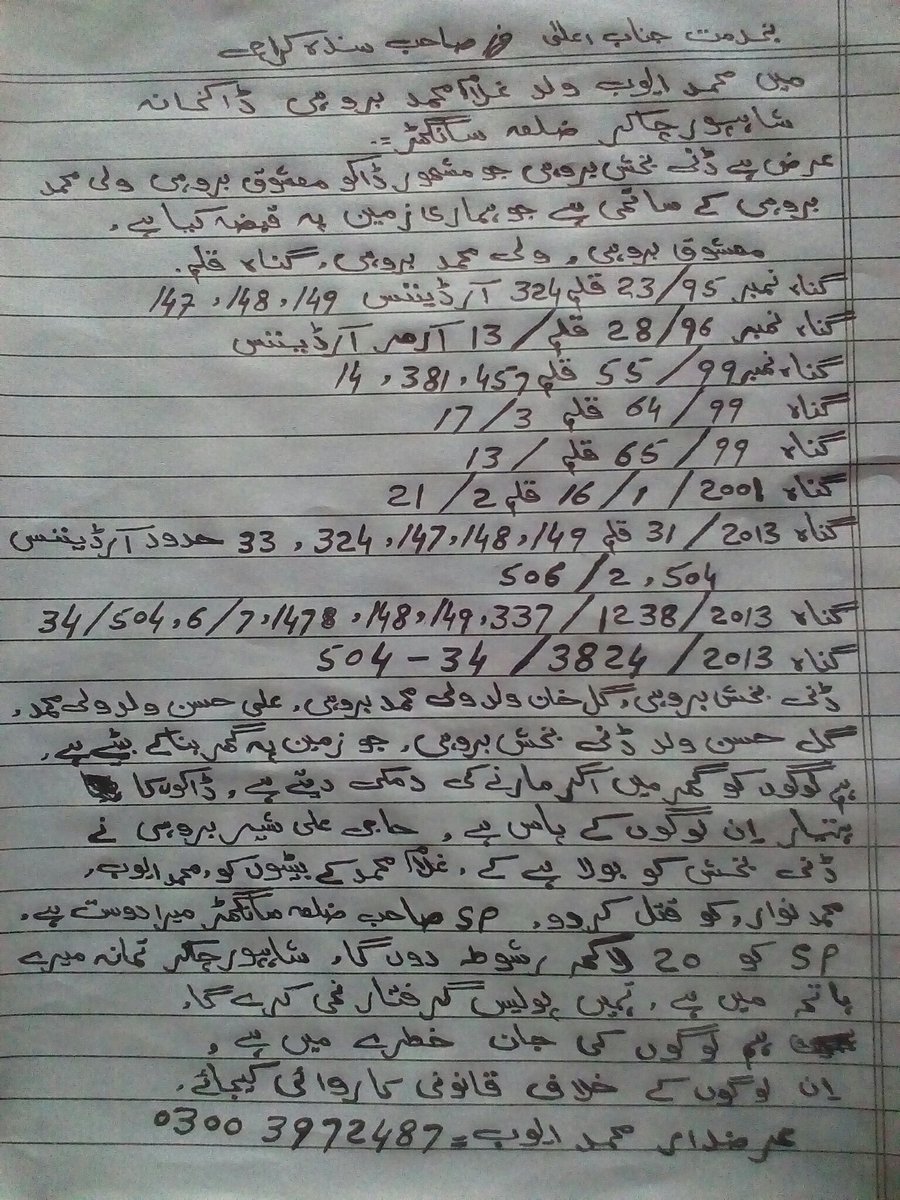 بخدمت جناب اعلیٰ صاحب سندھ کراچی
میں محمد ایوب ولد غلام محمد بروہی ڈاکخانہ
شاہپورچاکر ضلعہ سانگھڑ=:
عرض ہے ڈنے بخش بروہی جو مشھور ڈاکو معشوق بروہی ولی محمد
بروہی کے ساتھی ہے جو ہماری زمین پہ قبضہ کیا ہے۔
معشوق بروہی، ولی محمد بروہی، گناہ قلم۔
گناہ نمبر 23/95 قلم 324 آرڈیننس 149، 148، 147
گناہ نمبر 28/96 قلم / 13 آرمر آرڈیننس
گناہ نمبر 55/99 قلم 457، 381، 14
گناہ 64/99 قلم 17/3
گناہ 65/99 قلم / 13
گناہ 2001/ 1/ 16 قلم 21/2
گناہ 31/2013 قلم 149، 148، 147، 324، 33 حدود آرڈیننس
506/2، 504
گناہ 2013/ 1238/ 337، 149، 148، 1478، 34/504، 6/7
گناہ 2013/ 3824/ 504 – 34
ڈنے بخش بروہی، گل خان ولد ولی محمد بروہی، علی حسن ولد ولی محمد،
گل حسن ولد ڈنے بخش بروہی، جو زمین پہ گھر بنائے بیٹے ہے،
ہم لوگوں کو گھر میں آکر مارنے کی دمکی دیتے ہے، ڈاکوں کا
ہتہیار اِن لوگوں کے پاس ہے، حاجی علی شیر بروہی نے
ڈنے بخش کو بولا ہے کے، غلام محمد کے بیٹوں کو، محمد ایوب،
محمد نواز، کو قتل کردو، SP صاحب ضلعہ سانگھڑ میرا دوست ہے،
SP کو 20 لاکھ رشوط دوں گا، شاہپورچاکر تھانہ میرے
ہاتھ میں ہے، تمہیں پولیس گرفتار نہی کرے گا،
ہم لوگوں کی جان خطرے میں ہے،
اِن لوگوں کے خلاف قانونی کاروائی کیجائے۔
عرضدار محمد ایوب = 0300 3972487